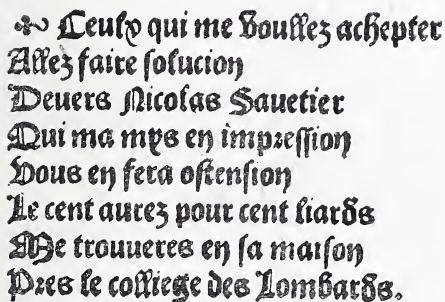 ❧ Ceulx qui me voullez achepter
Allez faire solucion
Devers Nicolas Savetier
Qui ma mys en impression
Vous en fera ostension
Le cent aurez pour cent liards
Me trouueres en sa maison
Pres le colliege des Lombards.